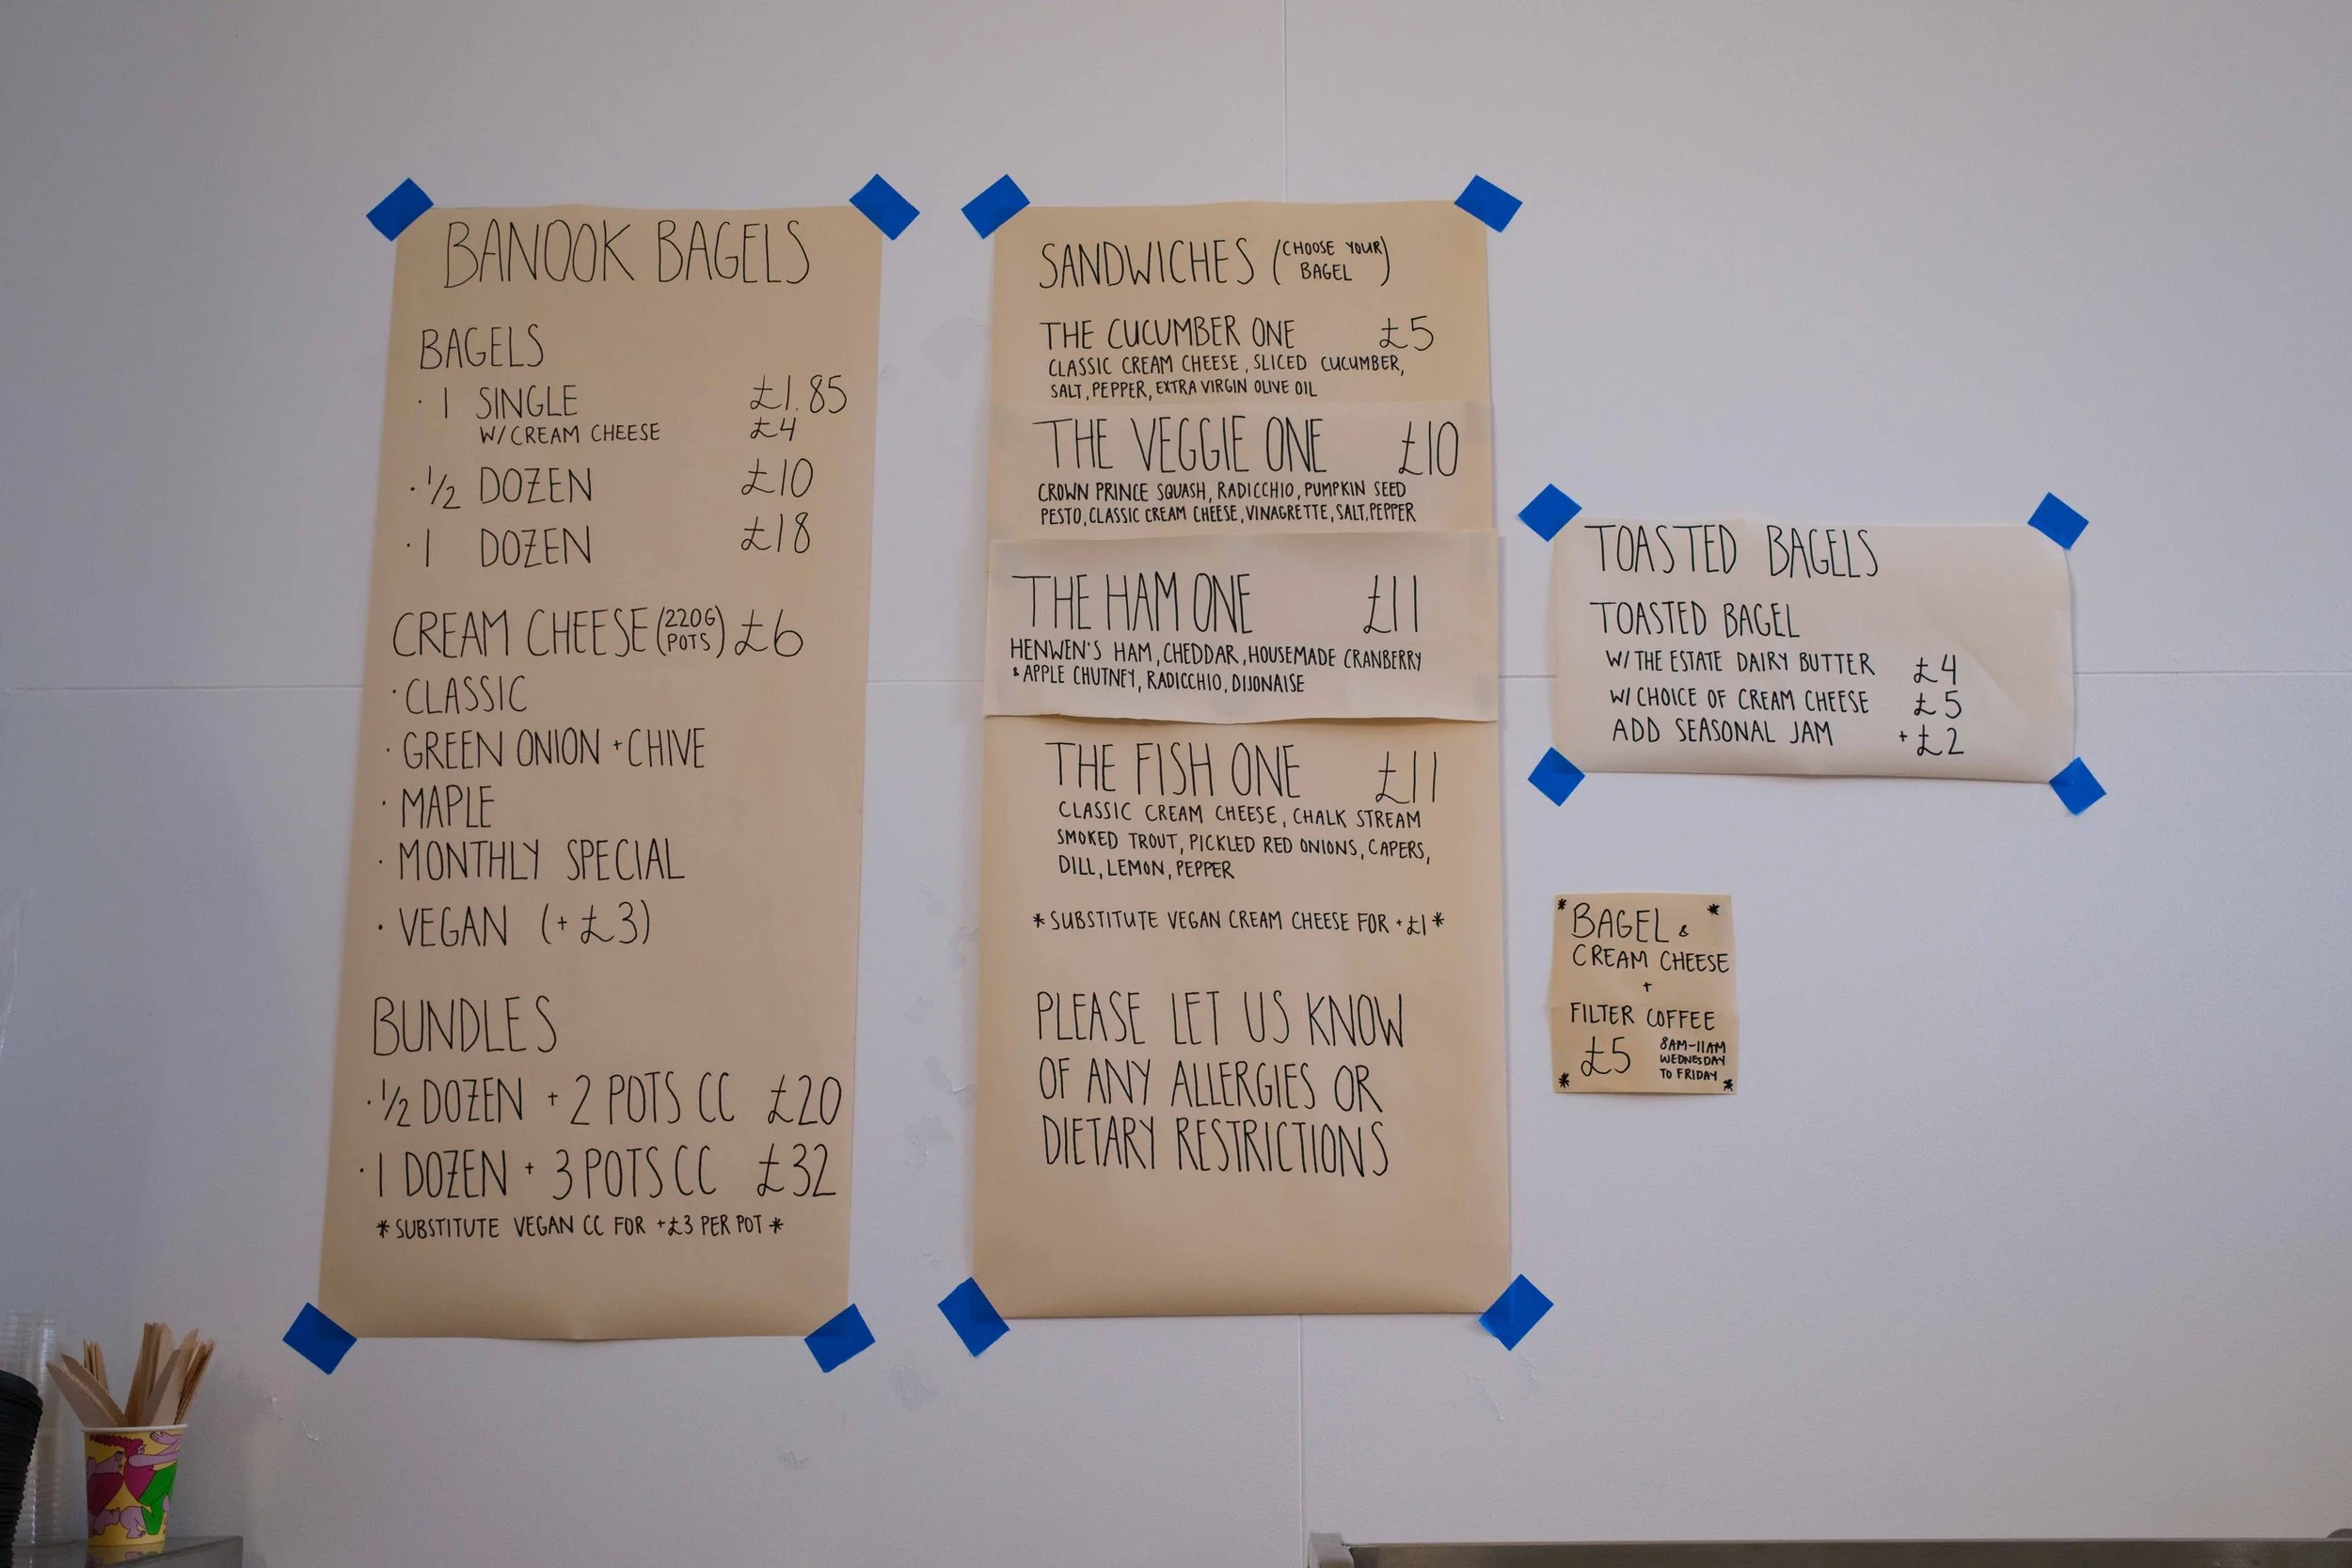 BANOOK BAGELS
BAGELS
· 1 SINGLE £1.85
W/ CREAM CHEESE £4
· 1/2 DOZEN £10
· 1 DOZEN £18
CREAM CHEESE (220G POTS) £6
· CLASSIC
· GREEN ONION + CHIVE
· MAPLE
· MONTHLY SPECIAL
· VEGAN (+ £3)
BUNDLES
· 1/2 DOZEN + 2 POTS CC £20
· 1 DOZEN + 3 POTS CC £32
* SUBSTITUTE VEGAN CC FOR +£3 PER POT *
SANDWICHES (CHOOSE YOUR BAGEL)
THE CUCUMBER ONE £5
CLASSIC CREAM CHEESE, SLICED CUCUMBER,
SALT, PEPPER, EXTRA VIRGIN OLIVE OIL
THE VEGGIE ONE £10
CROWN PRINCE SQUASH, RADICCHIO, PUMPKIN SEED
PESTO, CLASSIC CREAM CHEESE, VINAGRETTE, SALT, PEPPER
THE HAM ONE £11
HENWEN'S HAM, CHEDDAR, HOUSEMADE CRANBERRY
& APPLE CHUTNEY, RADICCHIO, DIJONAISE
THE FISH ONE £11
CLASSIC CREAM CHEESE, CHALK STREAM
SMOKED TROUT, PICKLED RED ONIONS, CAPERS,
DILL, LEMON, PEPPER
* SUBSTITUTE VEGAN CREAM CHEESE FOR +£1 *
PLEASE LET US KNOW
OF ANY ALLERGIES OR
DIETARY RESTRICTIONS
TOASTED BAGELS
TOASTED BAGEL
W/ THE ESTATE DAIRY BUTTER £4
W/ CHOICE OF CREAM CHEESE £5
ADD SEASONAL JAM +£2
* BAGEL & *
CREAM CHEESE
+
FILTER COFFEE
£5 8AM-11AM
WEDNESDAY
* TO FRIDAY *